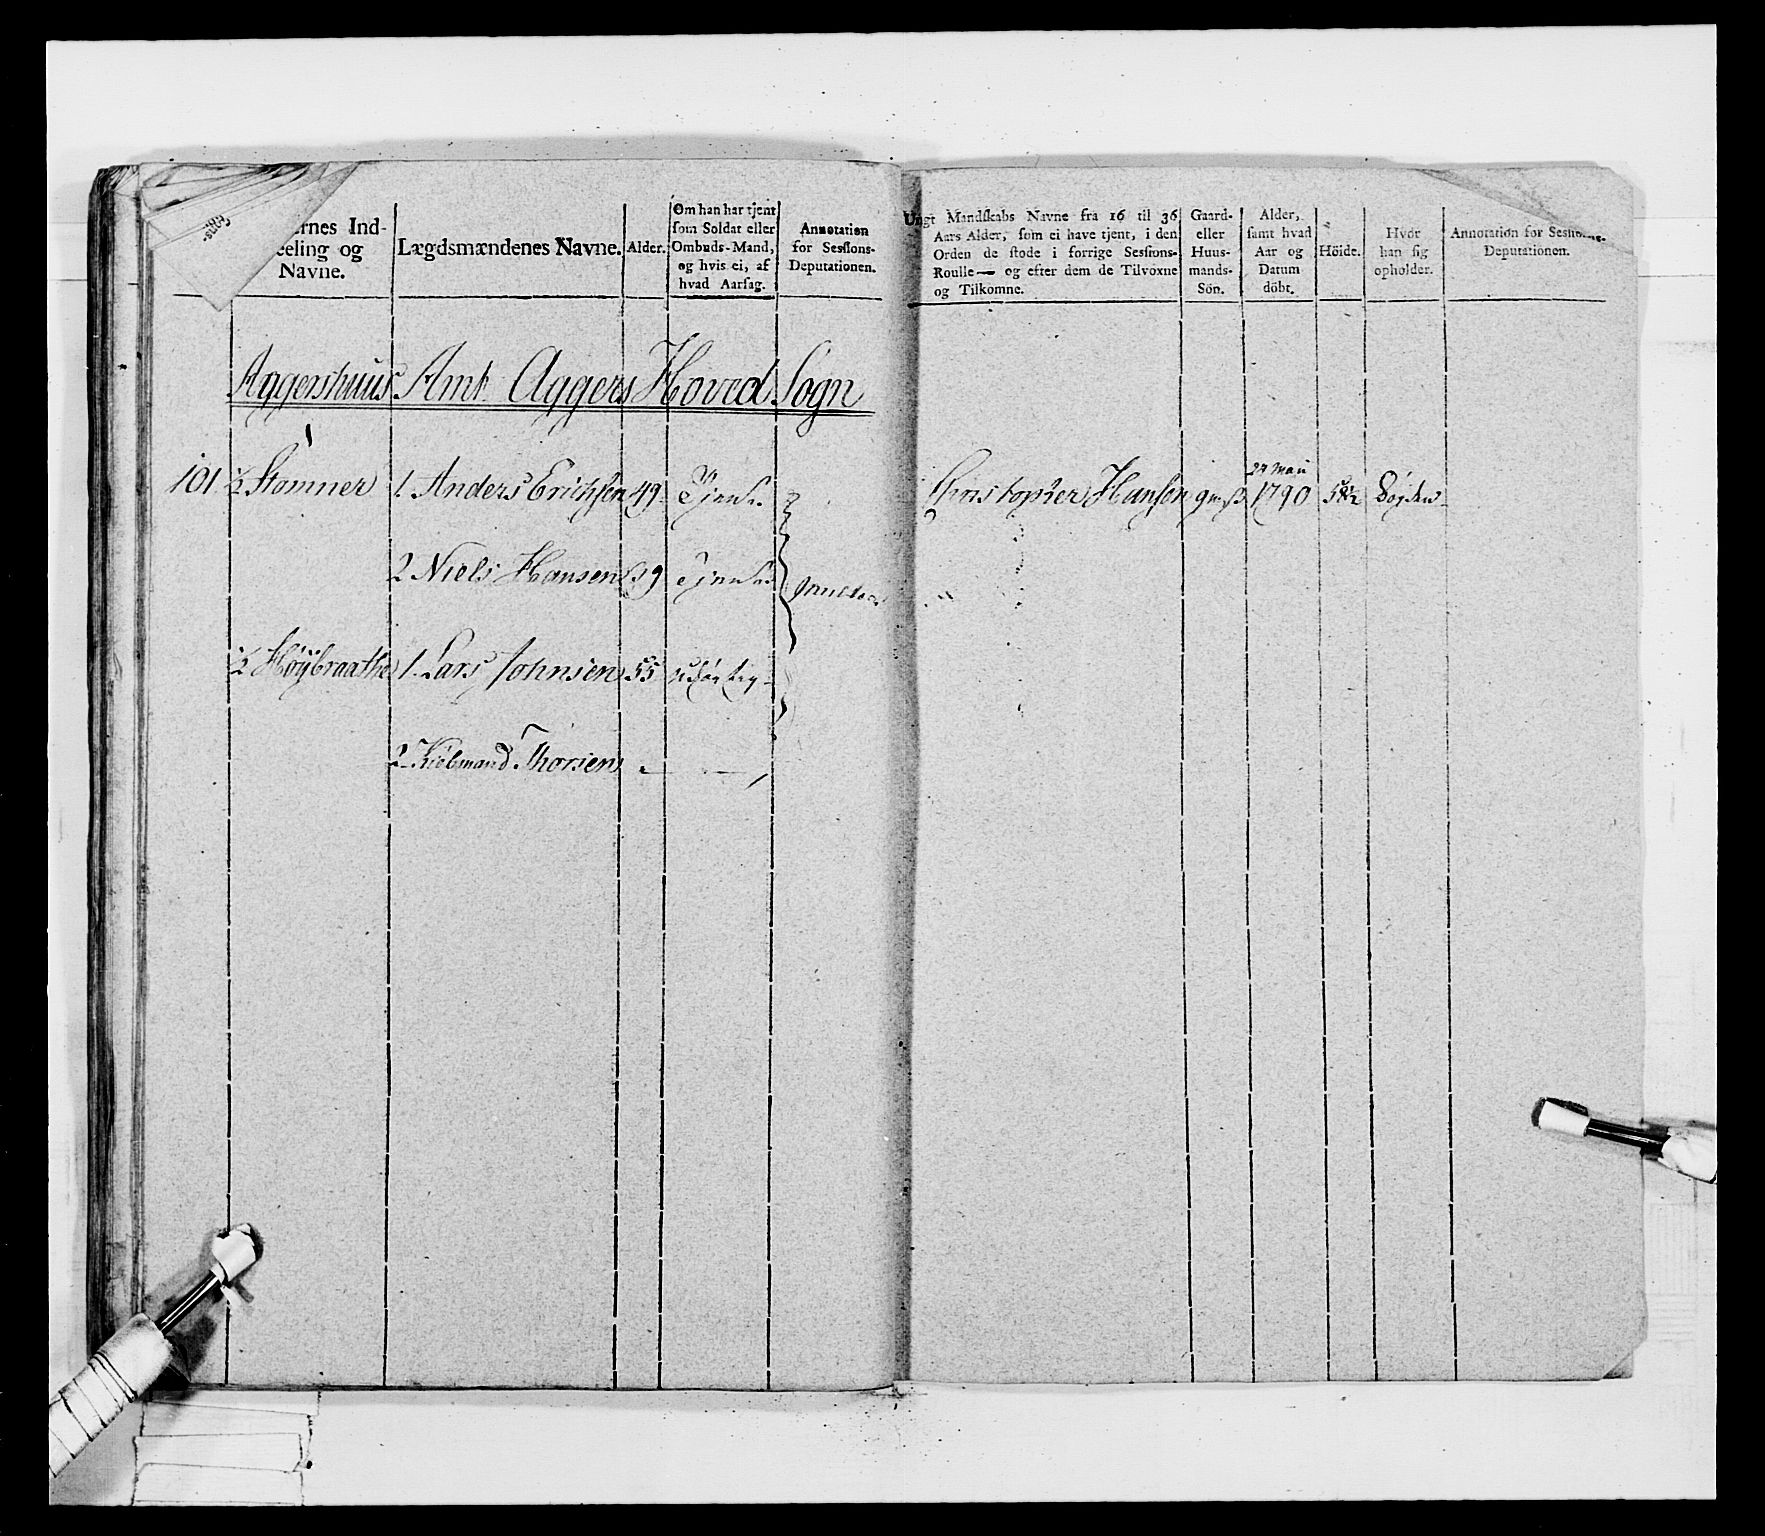 ernes Ind-
eeling og
Navne.
Lægdsmændenes Navne.
Alder.
Om han har tjent
som Soldat eller
Ombuds-Mand,
og hvis ei, af
hvad Aarsag.
Annotation
for Sessions-
Deputationen.
Ungt Mandskabs Navne fra 16 til 36
Aars Alder, som ei have tjent, i den
Orden de stode i forrige Sessions-
Roulle— og efter dem de Tilvoxne
og Tilkomne.
Gaard-
eller
Huus-
mands-
Sön.
Alder,
samt hvad
Aar og
Datum
döbt.
Höide.
Hvor
han sig
opholder.
Annotation for Sessions-
Deputationen.
Aggershuus Amt Aggers Hoved Sogn
101 ½ Stamner 1. Anders Erichsen 49 Tjent.
Christopher Hansen 24 Mai 1790 Bøjden
2 Niels Hansen 59 Tjent.
½ Høybraathe 1. Lars Johnsen 55 udygtig
2 Kiölsmand Thorsen